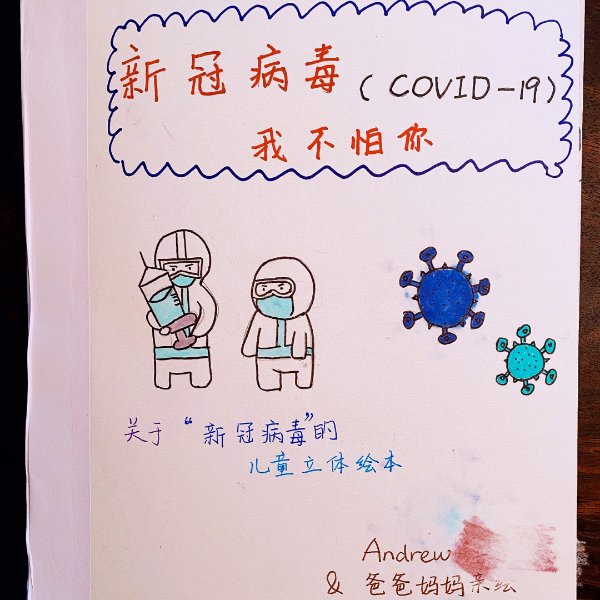 新冠病毒(COVID-19)
我不怕你
关于“新冠病毒”的
儿童立体绘本
Andrew
& 爸爸妈妈亲绘